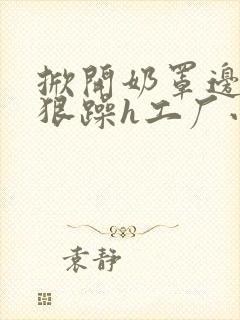 掀開奶罩邊
狠躁h工厂
袁静